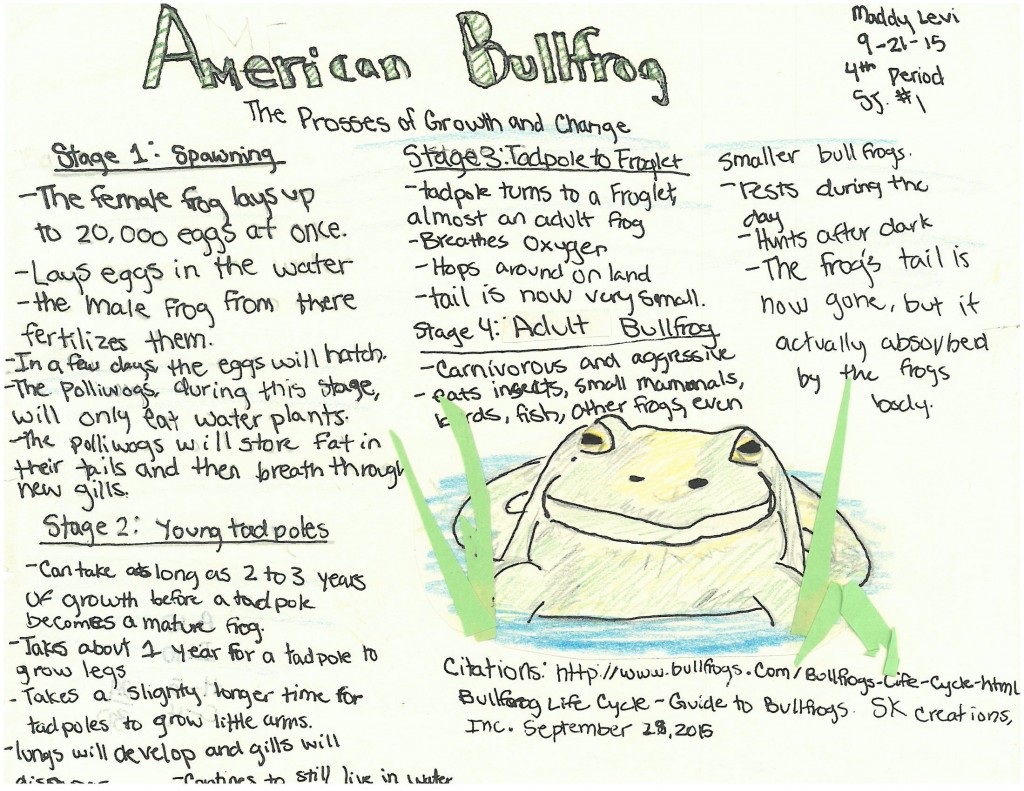 American Bullfrog
Maddy Levi
9-21-15
4th Period
SJ. #1
The Prosses of Growth and Change
Stage 1: Spawning
-The female frog lays up
to 20,000 eggs at once.
-Lays eggs in the water
-the male frog from there
fertilizes them.
-In a few days, the eggs will hatch.
-The polliwogs, during this stage,
will only eat water plants.
-The polliwogs will store fat in
their tails and then breath through
new gills.
Stage 2: Young tadpoles
-Can take as long as 2 to 3 years
of growth before a tadpole
becomes a mature frog.
-Takes about 1 year for a tadpole to
grow legs
-Takes a slightly longer time for
tadpoles to grow little arms.
-lungs will develop and gills will
-Contines to still live in water
Stage 3: Tadpole to Froglet
-tadpole turns to a Froglet,
almost an adult frog
-Breathes Oxygen
-Hops around on land
-tail is now very small.
Stage 4: Adult Bullfrog
-Carnivorous and aggressive
-eats insects, small mammals,
birds, fish, other frogs, even
smaller bullfrogs.
-rests during the
day
-Hunts after dark
-The frog's tail is
now gone, but it
actually absorbed
by the frogs
body.
Citations: http://www.bullfrogs.com/Bullfrogs-Life-Cycle-html
Bullfrog Life Cycle-Guide to Bullfrogs. SK Creations,
Inc. September 28, 2015